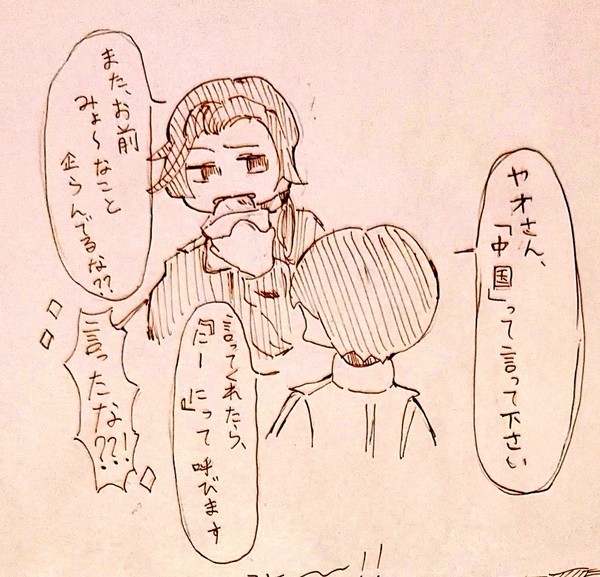 ヤオさん、
「中国」って言って下さい
また、お前
みょ〜なこと
企らんでるな??
言ってくれたら、
『だーに』って呼びます
言ったな??!